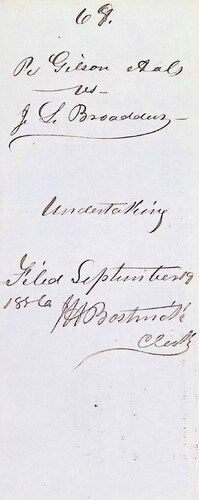 69.
P. Gilson & als
vs
J. L. Broaddus
Undertaking
Filed September 19
1856
J H Bostwick
Clerk